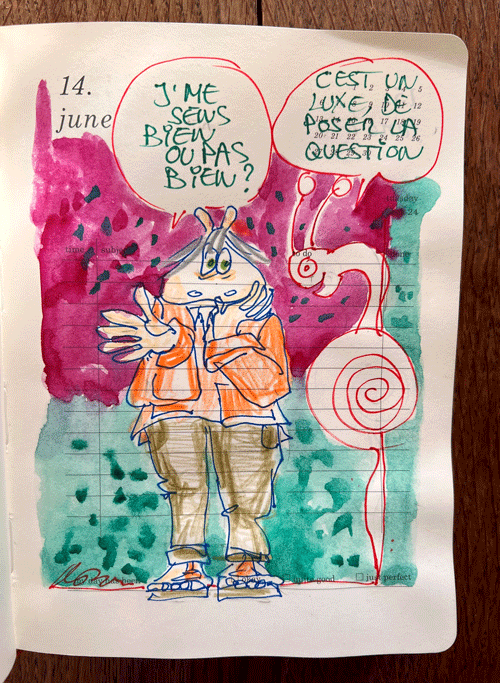 14.
june
J'ME
SENS
BIEN
OU PAS
BIEN?
C'EST UN
LUXE, DE
POSER LA
QUESTION
to do
good
just perfect